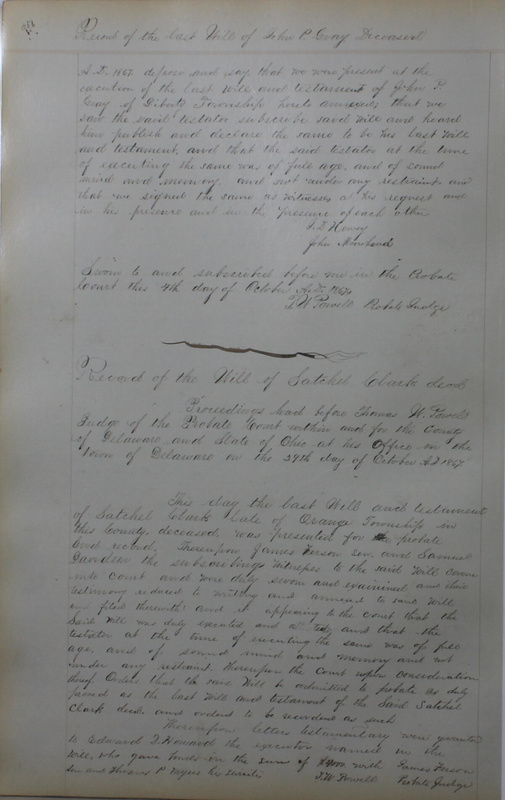 Record of the last Will of John P Gray Deceased
A.D. 1867 depose and say that we were present at the
execution of the last will and testament of John P.
Gray of Liberty Township hereto annexed that we
saw the said testator subscribe said will and heard
him publish and declare the same to be his last Will
and testament, and that the said testator at the time
of executing the same was of full age and of sound
mind and memory and not under any restraint and
that we signed the same as witnesses at his request and
in his presence and in the presence of each other
John Moreland
Sworn to and subscribed before me in the Probate
Court this 4th day of October A.D. 1867
T. W. Powell Probate Judge
Record of the Will of Satchel Clark decd
Proceedings had before Thomas W. Powell
Judge of the Probate Court within and for the County
of Delaware and State of Ohio at his Office in the
town of Delaware on the 29th day of October A.D 1867
This day the last Will and testament
of Satchel Clark late of Orange Township in
this County, deceased, was presented for probate
and record. Thereupon James Ferson sen. and Samuel
Davidson the subscribing witnesses to the said Will came
into Court and were duly sworn and examined and their
testimony reduced to writing and annexed to said Will
and filed therewith and it appearing to the court that the
Said Will was duly executed and and that the
testator at the time of executing the same was of full
age and of sound mind and memory and not
under any restraint thereupon the Court upon consideration
thereof Orders that the said Will be admitted to probate as duly
proved as the last Will and testament of the Said Satchel
Clark decd. and orders to be recorded as such
Thereupon letters testamentary were granted
to Edward D. Howard the executor named in the
Will, who gave bonds in the sum of with James Ferson
Sen and Thomas P Myers his sureties T.W. Powell Probate Judge